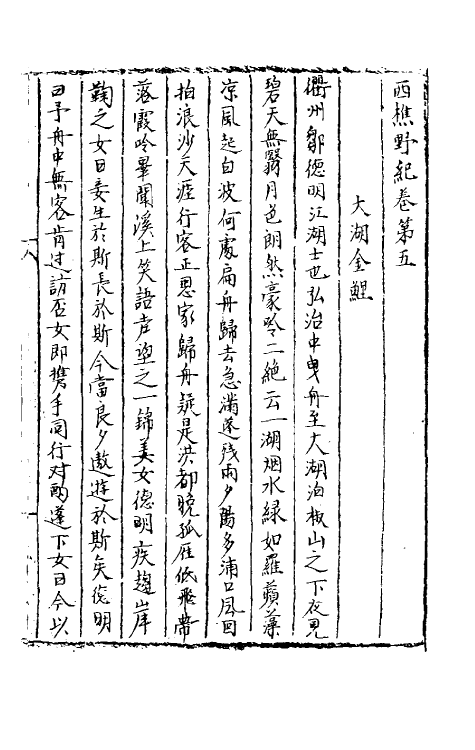 西樵野紀卷第五
大湖金鯉
衢州鄒德明江湖士也弘治中曳舟至大湖泊椒山之下夜見
碧天無翳月色朗然豪吟二絶云一湖烟水緑如羅蘋藻
凉風起白波何處扁舟歸去急滿蓬殘雨夕陽多浦口風回
拍浪沙天涯行客正思家歸舟疑是洪都晚孤雁低飛帶
落霞吟畢聞溪上笑語声迩之一錦美女德明疾趨岸
鞠之女曰妾生於斯長於斯今當良夕遨遊於斯矣德明
曰予舟中無客肯过訪否女即携手同行对酌蓬下女曰今以